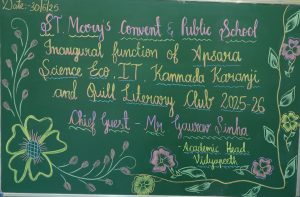 Date:-30/6/25
ST. Mary's Convent & Public School
Inaugural function of Apsara
Science Eco, IT, Kannada Karanji
and Quill Literary Club 2025-26
Chief Guest - Mr Gaurav Sinha
- Academic Head,
Vidyapeeth